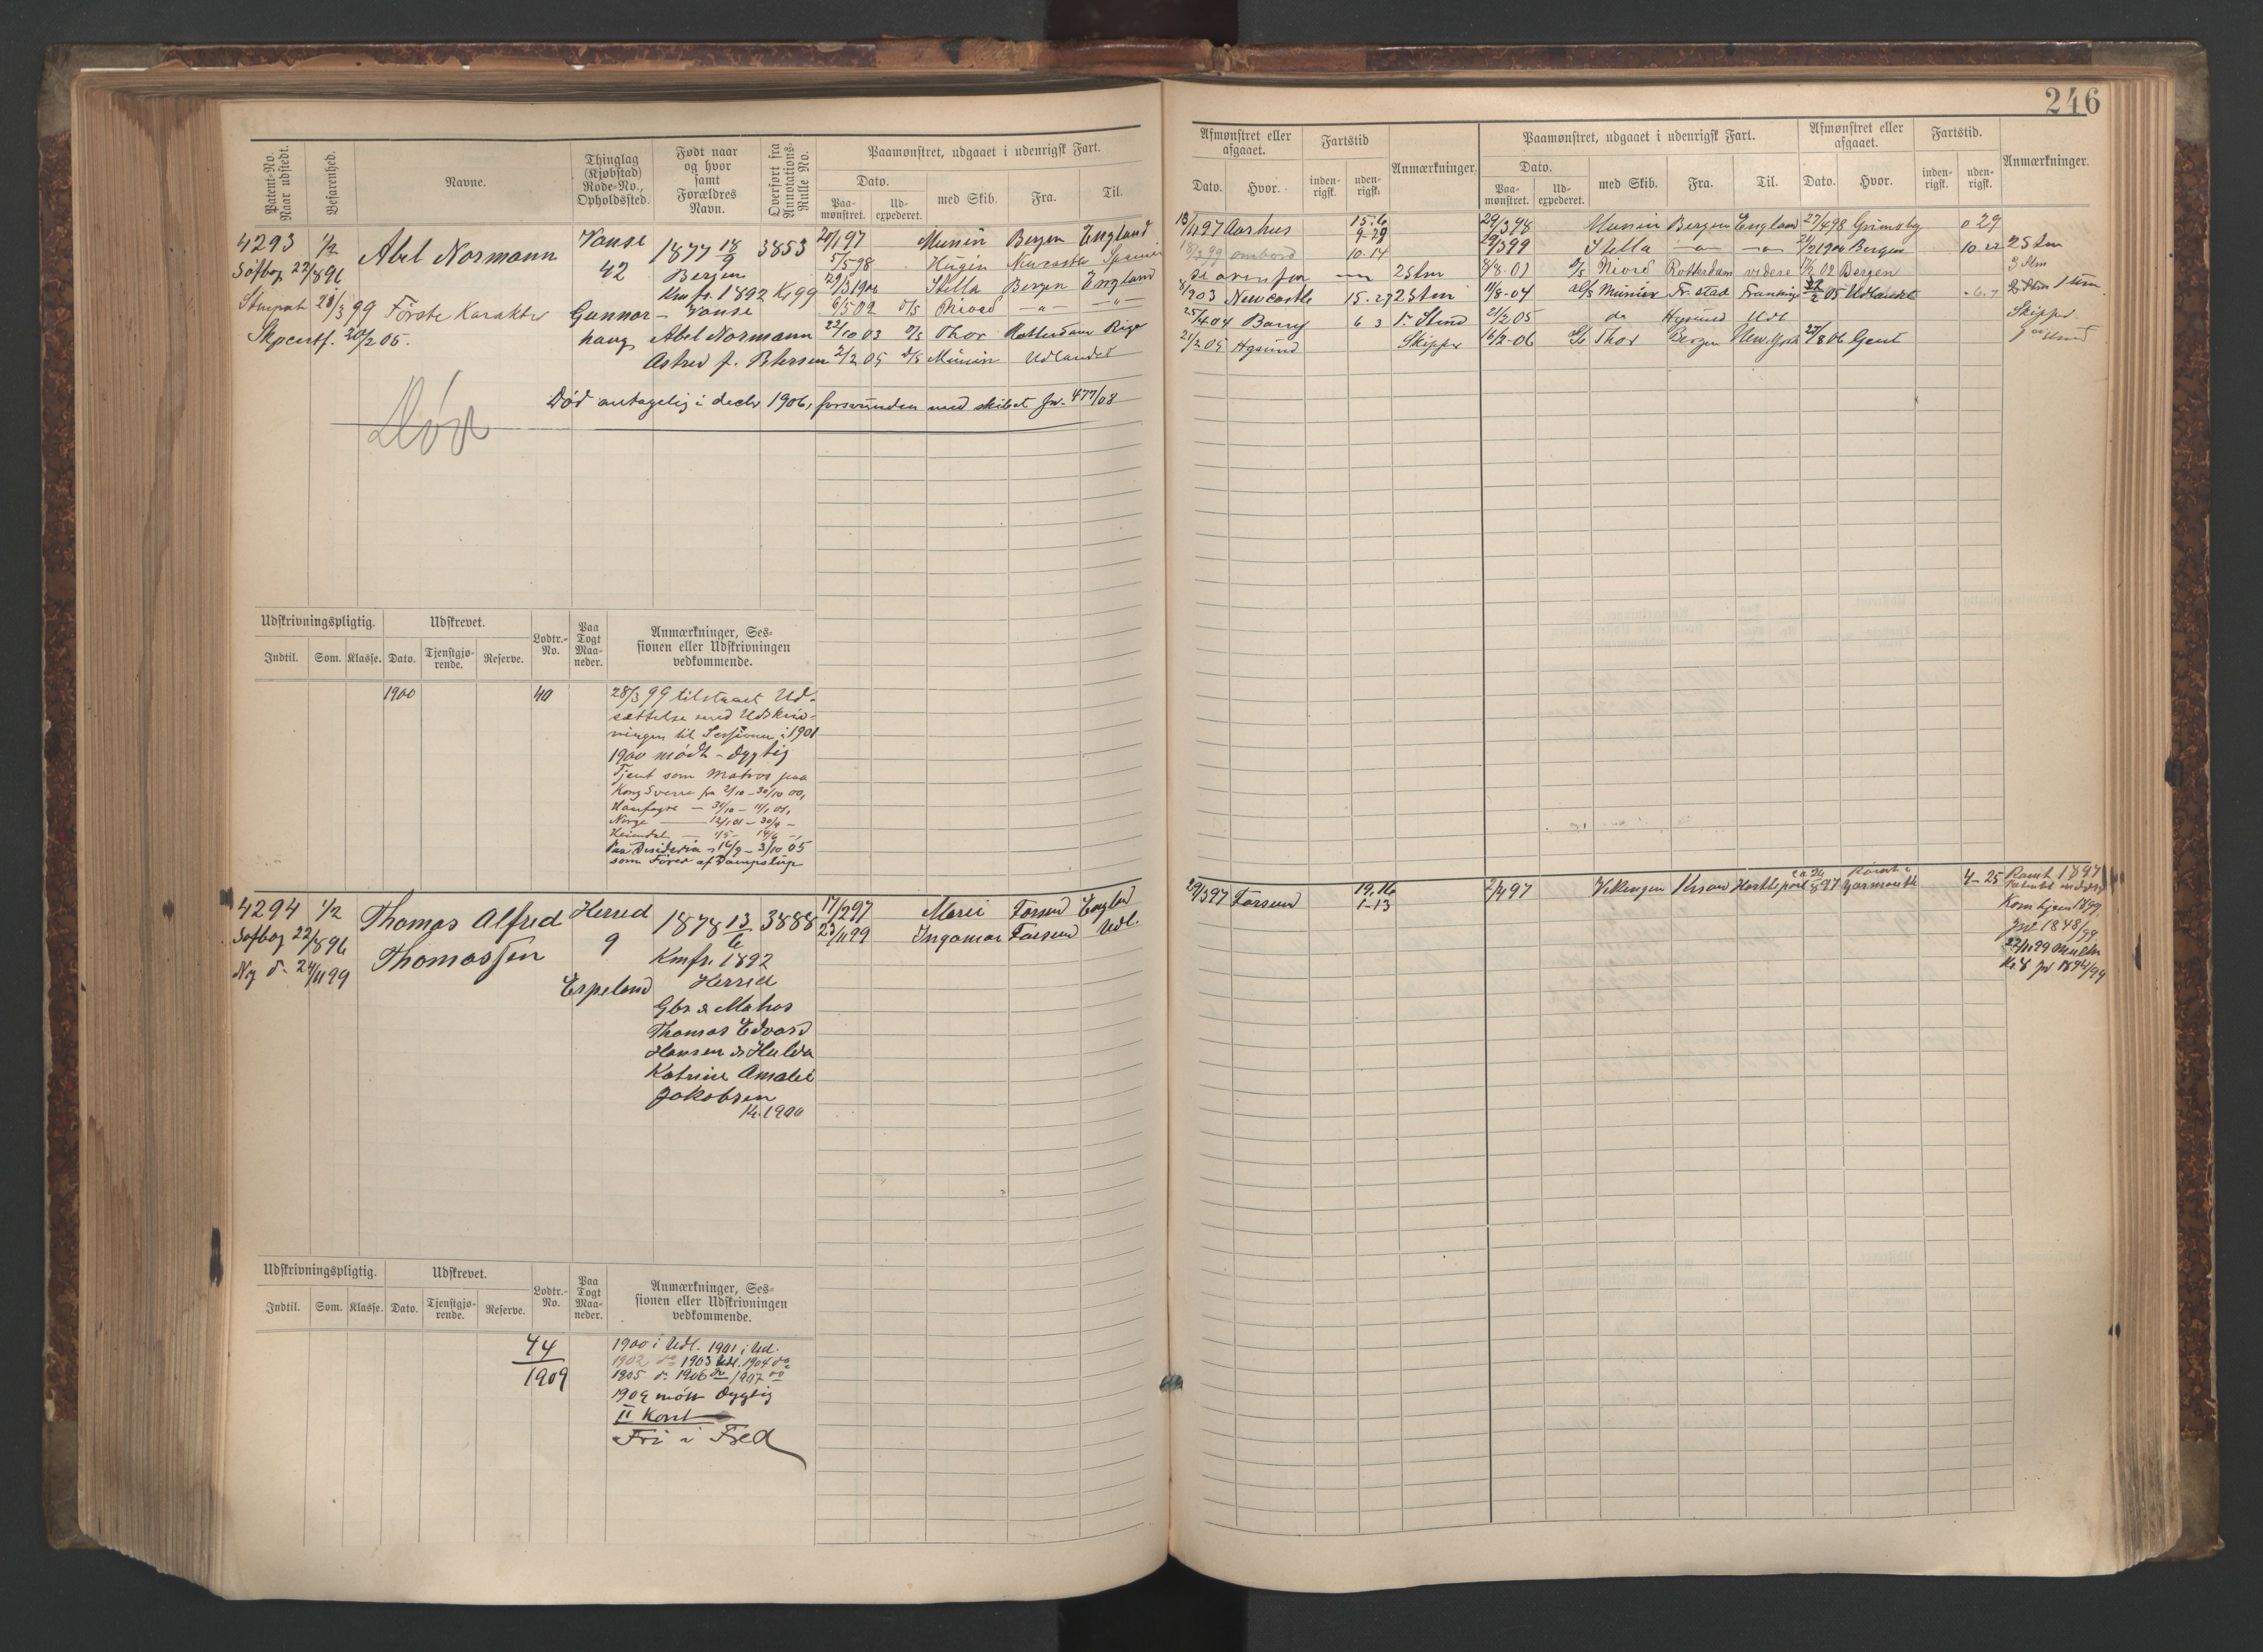 246
Patent-No. Naar udstedt.
Befarenhed.
Navne.
Thinglag (Kjøbstad) Rode-No., Opholdssted.
Født naar og hvor samt Forældres Navn.
Overført fra Annotations-Rulle No.
Paamønstret, udgaaet i udenrigsk Fart.
Dato.
Paa-mønstret.
Ud-expederet.
med Skib.
Fra.
Til.
4293 1/2 Abel Normann Vanse 1877 18/9 3853
Søfbog 22/8 96 42 Bergen
Kmfr. 1892
Stmpat 28/3 99 Første Karakter Gunnar- Vanse
Skpcertf. 20/2 05. haug Abel Normann
Astred f. Petersen
20/1 97 Munin Bergen England
5/5 98 Hugin Newcastle
29/3 1900 Stella Bergen England
6/5 02 D/S
22/10 03 D/S Thor Rotterdam Riga
2/2 05 D/S Munin Udlandet
Død antagelig i decbr 1906, forsvunden med skibet Jn. 477/08
Død
Udskrivningspligtig.
Udskrevet.
Lodtr.-No.
Paa Togt Maa-neder.
Anmærkninger, Ses-
sionen eller Udskrivningen
vedkommende.
Indtil. Som. Klasse. Dato. Tjenstgjø-rende. Reserve.
1900 40
28/3 99 tilstaaet Ud-
sættelse med Udskriv-
ningen til Sessionen i 1901
1900 mødt - dygtig
Tjent som Matros paa
Kong Sverre fra 2/10 - 30/10 00,
Harfagre — 31/10 - 11/1 01,
Norge — 12/1 01 - 30/4 -
Heimdal — 1/5 - 14/6 -,
Paa Desideria — 16/9 - 3/10 05
som Fører af Dampslup
4294 1/2 Thomas Alfred Herred 1878 13/6 3888
Søfbog 22/8 96 Thomassen 9 Kmfr. 1892
Ny do 24/11 99 Espeland Herred
Gbr & Matros
Thomas Edvard
Hansen & Hulda
Katrine Amalie
Jakobsen
14. 1900
17/2 97 Marie Farsund England
23/11 99 Ingomar Farsund Udl.
Udskrivningspligtig.
Udskrevet.
Lodtr.-No.
Paa Togt Maa-neder.
Anmærkninger, Ses-
sionen eller Udskrivningen
vedkommende.
Indtil. Som. Klasse. Dato. Tjenstgjø-rende. Reserve.
44
1909
1900 i Udl. 1901 i Ud.
1902 do 1903 Udl. 1904 do
1905 do 1906 do 1907 do
1909 mødt dygtig
II Kont
Fri i Fred
Afmønstret eller afgaaet.
Fartstid
Anmærkninger.
Paamønstret, udgaaet i udenrigsk Fart.
Afmønstret eller afgaaet.
Fartstid.
Anmærkninger.
Dato. Hvor. inden-rigsk. uden-rigsk.
Dato.
Paa-mønstret. Ud-expederet. med Skib. Fra. Til. Dato. Hvor. inden-rigsk. uden-rigsk.
13/11 97 Aarhus 15.6 29/3 98 Munin Bergen England 27/4 98 Grimsby 0 29
9-29
18/3 99 ombord 10-14 29/3 99 Stella 21/2 1900 Bergen 10-22 2 Stm
2 Stm 8/8-01 D/S Rotterdam videre 02 Bergen 3 Stm
8/1 03 Newcastle 15-27 2 Stm 11/8-04 D/S Munin Fr.stad 05 Udlandet
25/4 04 Barry 6 3 1. Stmd 21/2 05 do Udl Skipper
21/2 05 Skipper 16/2-06 D/S Thor Bergen New York 27/8 06 Gent
29/3 97 Farsund 19.16 2/4 97 Vikingen Krsand Hartlepool Rømt i Yarmouth 4-25 Rømt 1897
1-13
Kom hjem 1899.
Jnl 1848/99.
22/11 99 Mulkt
Kr. 8 Jnl 1894/99